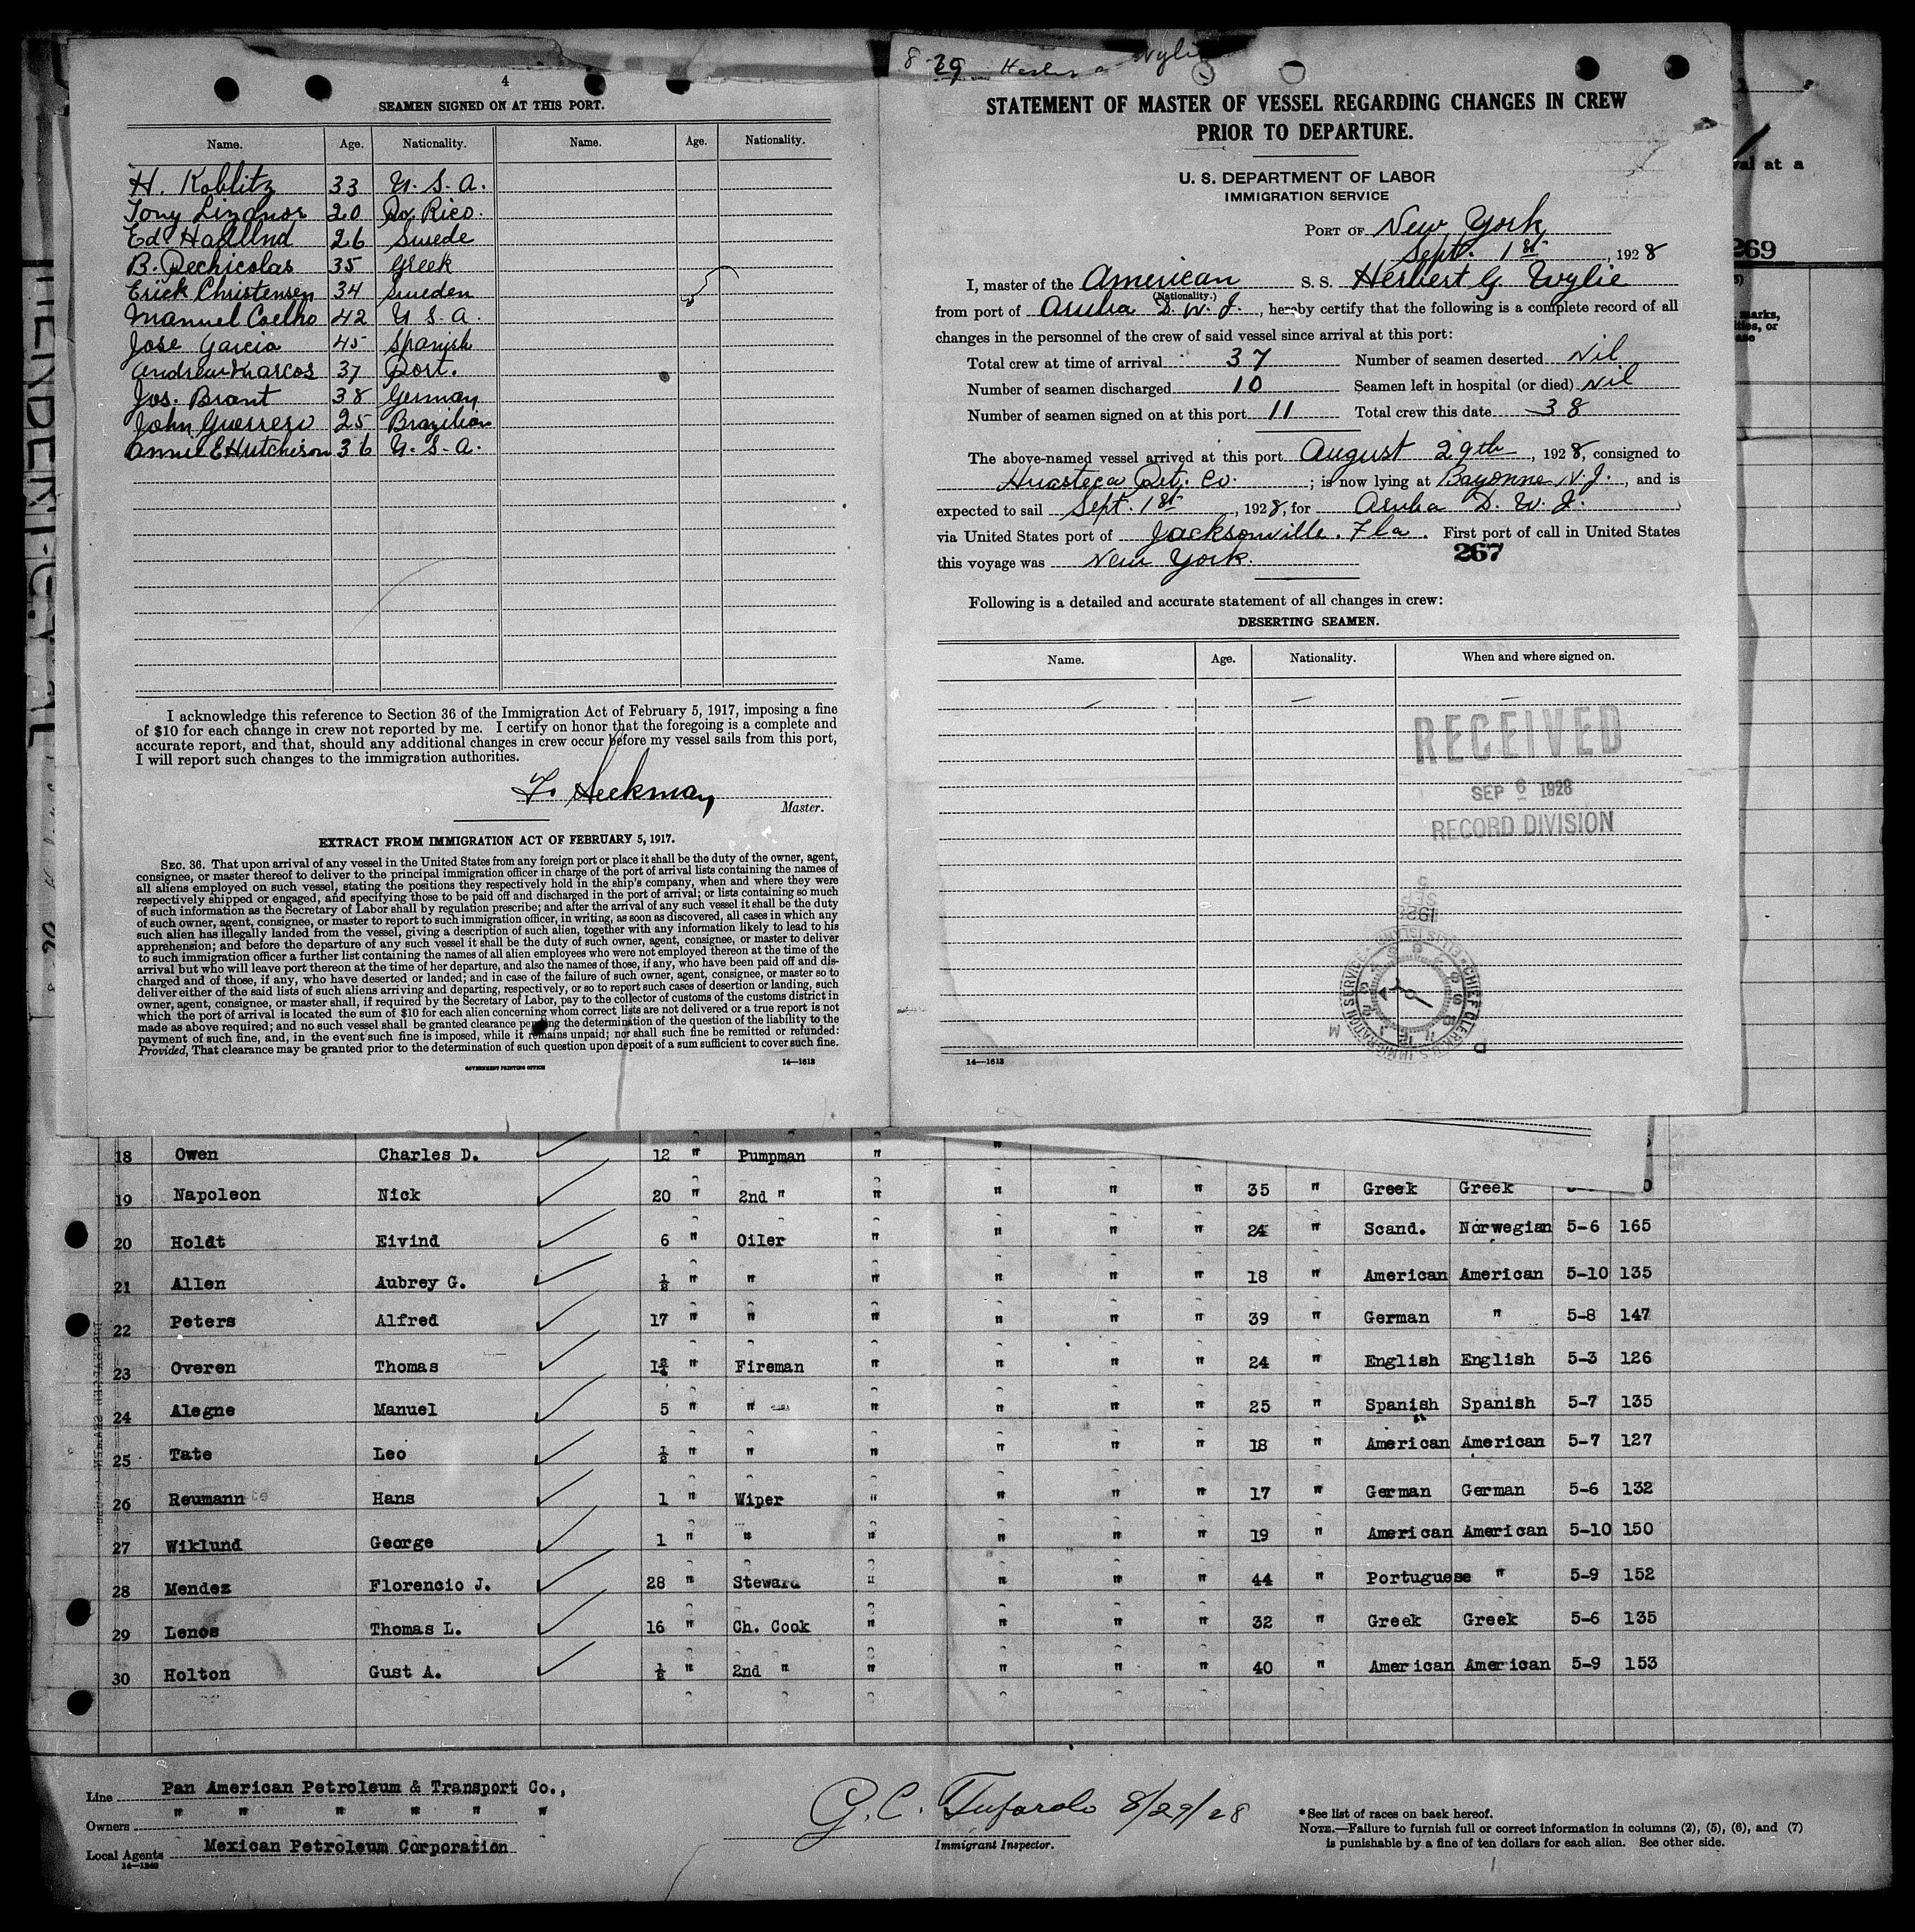 4
SEAMEN SIGNED ON AT THIS PORT.
Name. Age. Nationality. Name. Age. Nationality.
H. Koblitz 33 U. S. A.
Tony 20 Po. Rico.
Ed Haglund 26 Swede
B. Pechicolas 35 Greek
Erick Christensen 34 Sweden
Manuel Coelho 42 U S A.
Jose Garcia 45 Spanish
Andrew Marcos 37 Port.
Jos. Brant 38 German
John Guerrero 25 Brazilian
Annie E Hutcheson 36 U. S. A.
I acknowledge this reference to Section 36 of the Immigration Act of February 5, 1917, imposing a fine
of $10 for each change in crew not reported by me. I certify on honor that the foregoing is a complete and
accurate report, and that, should any additional changes in crew occur before my vessel sails from this port,
I will report such changes to the immigration authorities.
Master.
EXTRACT FROM IMMIGRATION ACT OF FEBRUARY 5, 1917.
SEC. 36. That upon arrival of any vessel in the United States from any foreign port or place it shall be the duty of the owner, agent,
consignee, or master thereof to deliver to the principal immigration officer in charge of the port of arrival lists containing the names of
all aliens employed on such vessel, stating the positions they respectively hold in the ship's company, when and where they were
respectively shipped or engaged, and specifying those to be paid off and discharged in the port of arrival; or lists containing so much
of such information as the Secretary of Labor shall by regulation prescribe; and after the arrival of any such vessel it shall be the duty
of such owner, agent, consignee, or master to report to such immigration officer, in writing, as soon as discovered, all cases in which any
such alien has illegally landed from the vessel, giving a description of such alien, together with any information likely to lead to his
apprehension; and before the departure of any such vessel it shall be the duty of such owner, agent, consignee, or master to deliver
to such immigration officer a further list containing the names of all alien employees who were not employed thereon at the time of the
arrival but who will leave port thereon at the time of her departure, and also the names of those, if any, who have been paid off and dis-
charged and of those, if any, who have deserted or landed; and in case of the failure of such owner, agent, consignee, or master so to
deliver either of the said lists of such aliens arriving and departing, respectively, or so to report such cases of desertion or landing, such
owner, agent, consignee, or master shall, if required by the Secretary of Labor, pay to the collector of customs of the customs district in
which the port of arrival is located the sum of $10 for each alien concerning whom correct lists are not delivered or a true report is not
made as above required; and no such vessel shall be granted clearance pending the determination of the question of the liability to the
payment of such fine, and, in the event such fine is imposed, while it remains unpaid; nor shall such fine be remitted or refunded:
Provided, That clearance may be granted prior to the determination of such question upon deposit of a sum sufficient to cover such fine.
GOVERNMENT PRINTING OFFICE 14—1613
8-29
STATEMENT OF MASTER OF VESSEL REGARDING CHANGES IN CREW
PRIOR TO DEPARTURE.
U. S. DEPARTMENT OF LABOR
IMMIGRATION SERVICE
PORT OF New York
Sept. 1st, 1928
I, master of the American S. S. Herbert G. Wylie
(Nationality.)
from port of Aruba D. W. I., hereby certify that the following is a complete record of all
changes in the personnel of the crew of said vessel since arrival at this port:
Total crew at time of arrival 37 Number of seamen deserted Nil
Number of seamen discharged 10 Seamen left in hospital (or died) Nil
Number of seamen signed on at this port 11 Total crew this date 38
The above-named vessel arrived at this port August 29th, 1928, consigned to
Huasteca Pet. Co. ; is now lying at Bayonne N. J., and is
expected to sail Sept. 1st, 1928, for Aruba D. W. I.
via United States port of Jacksonville. Fla. First port of call in United States
this voyage was New York.
267
Following is a detailed and accurate statement of all changes in crew:
DESERTING SEAMEN.
Name. Age. Nationality. When and where signed on.
RECEIVED
SEP 6 1928
RECORD DIVISION
14—1613
val at a
269
marks,
18 Owen Charles D. 12 " Pumpman " "
19 Napoleon Nick 20 " 2nd " " " " " 35 " Greek Greek
20 Holdt Eivind 6 " Oiler " " " " 24 " Scand. Norwegian 5-6 165
21 Allen Aubrey G. ½ " " " " " " 18 " American American 5-10 135
22 Peters Alfred 17 " " " " " " 39 " German " 5-8 147
23 Overen Thomas 1¾ " Fireman " " " " 24 " English English 5-3 126
24 Alegne Manuel 5 " " " " " " 25 " Spanish Spanish 5-7 135
25 Tate Leo ½ " " " " " " 18 " American American 5-7 127
26 Reumann Hans 1 " Wiper " " " " 17 " German German 5-6 132
27 Wiklund George 1 " " " " " " 19 " American American 5-10 150
28 Mendez Florencio J. 28 " Steward " " " " 44 " Portuguese " 5-9 152
29 Lenos Thomas L. 16 " Ch. Cook " " " " 32 " Greek Greek 5-6 135
30 Holton Gust A. ½ " 2nd " " " " " 40 " American American 5-9 153
Line Pan American Petroleum & Transport Co.,
Owners " " " " " "
Local Agents Mexican Petroleum Corporation
14—1240
G. C. Tufarolo 8/29/28
Immigrant Inspector.
*See list of races on back hereof.
NOTE.—Failure to furnish full or correct information in columns (2), (5), (6), and (7)
is punishable by a fine of ten dollars for each alien. See other side.